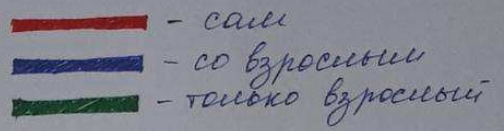 - сам
- со взрослым
- только взрослый